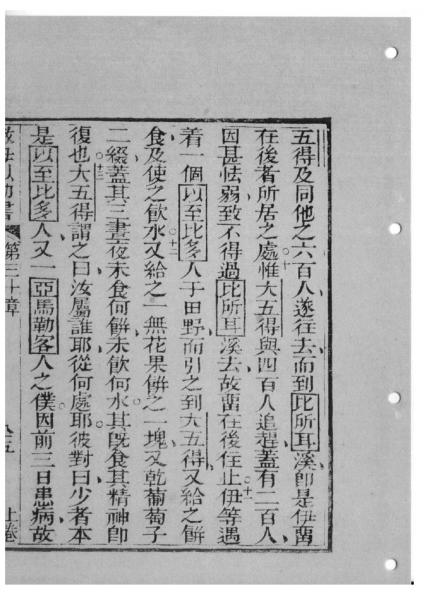 五得及同他之六百人遂往去而到比所耳溪卽是伊畱
在後者所居之處惟大五得與四百人追趕蓋有二百人
十
因甚怯弱致不得過比所耳溪去故畱在後住止伊等遇
十一
着一個以至比多人于田野而引之到大五得又給之餅
食及使之飮水又給之一無花果餅之一塊又乾葡萄子
十二
二綴蓋其三晝夜未食何餅未飮何水其旣食其精神卽
復也大五得謂之曰汝屬誰耶從何處耶彼對曰少者本
十三
是以至比多人又一亞馬勒客人之僕因前三日患病故
書 第三十章 上卷